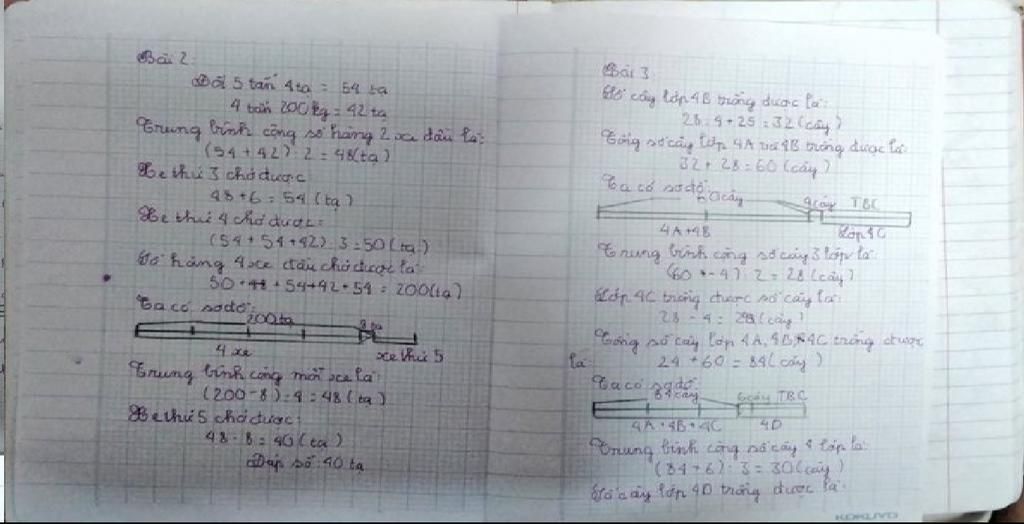 Bài 2:
Đổi 5 tấn 4 tạ = 54 tạ
4 tấn 200kg = 42 tạ
Trung bình cộng số hàng 2 xe đầu là:
(54 + 42) : 2 = 48(tạ)
Xe thứ 3 chở được:
48 + 6 = 54 (tạ)
Xe thứ 4 chở được:
(54 + 54 + 42) : 3 = 50 (tạ)
Số hàng 4 xe đầu chở được là:
50 + 54 + 42 + 54 = 200(tạ)
Ta có sơ đồ:
200 tạ 8 tạ
4 xe xe thứ 5
Trung bình cộng mỗi xe là:
(200 - 8) : 4 = 48 (tạ)
Xe thứ 5 chở được:
48 - 8 = 40 (tạ)
Đáp số: 40 tạ
Bài 3
Số cây lớp 4B trồng được là:
28 + 4 = 32 (cây)
Tổng số cây lớp 4A và 4B trồng được là
32 + 28 = 60 (cây)
Ta có sơ đồ:
60 cây 4 cây TBC
4A + 4B Lớp 4C
Trung bình cộng số cây 3 lớp là:
(60 - 4) : 2 = 28 (cây)
Lớp 4C trồng được số cây là:
28 - 4 = (cây)
Tổng số cây lớp 4A, 4B, 4C trồng được
là: 24 + 60 = 84 (cây)
Ta có sơ đồ:
84 cây 6 cây TBC
4A + 4B + 4C 4D
Trung bình cộng số cây 4 lớp là:
(84 + 6) : 3 = 30 (cây)
Số cây lớp 4D trồng được là:
KOKUYO